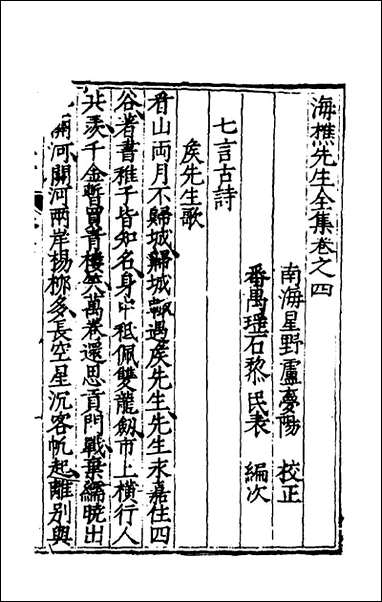 海樵先生全集卷之四
南海星野盧夢陽　校正
番禺瑶石黎民表　編次
七言古詩
侯先生歌
看山兩月不歸城歸城輒過侯先生先生永嘉住四
谷著書稚子皆知名身中秪佩雙龍劒市上橫行人
共羨千金暫買青樓笑萬卷還思貢門戰棄繻曉出
關河關河兩岸楊柳多長空星沉客帆起離别與